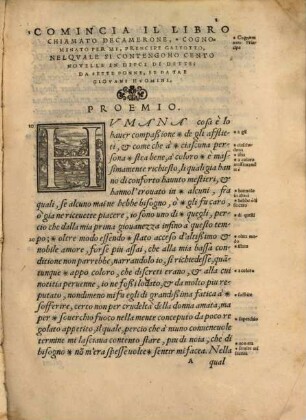 COMINCIA IL LIBRO
CHIAMATO DECAMERONE, * COGNO-
MINATO PER ME, PRENCIPE GALEOTTO,
NEL QVALE SI CONTENGONO CENTO
NOVELLE IN DIECI DI DETTE:
DA SETTE DONNE, ET DA TRE
GIOVANI HVOMINI.
PROEMIO.
VMANA cosa è lo
hauer compassione * de gli afflit-
ti, & come che à * ciascuna per-
sona * stea bene, à coloro * è mas-
simamente richiesto, li quali gia han
no di conforto hauuto mestieri, &
hannol trouato in * alcuni, fra
quali, se alcuno mai ne hebbe bisogno, o * gli fu caro,
o gia ne riceuette piacere, io sono uno di * quegli, per-
cio che dalla mia prima giouanezza infino à questo tem-
po * oltre modo essendo * stato acceso d'altissimo &
nobile amore, forse piu assai, che alla mia bassa con-
ditione non parrebbe, narrandolo io, si richiedesse, quã-
tunque * appo coloro, che discreti erano, & alla cui
notitia peruenne, io ne fossi lodato, & da molto piu re-
putato, nondimeno mi fu egli di grandissima fatica à *
sofferire, certo non per crudeltà della donna amata, ma
per * souerchio fuoco nella mente conceputo da poco re-
golato appetito, il quale, percio che à niuno conueneuole
termine mi lasciaua contento stare, piu di noia, che di
bisogno * nõ m'era spesse uolte * sentir mi facea. Nella
A
qual